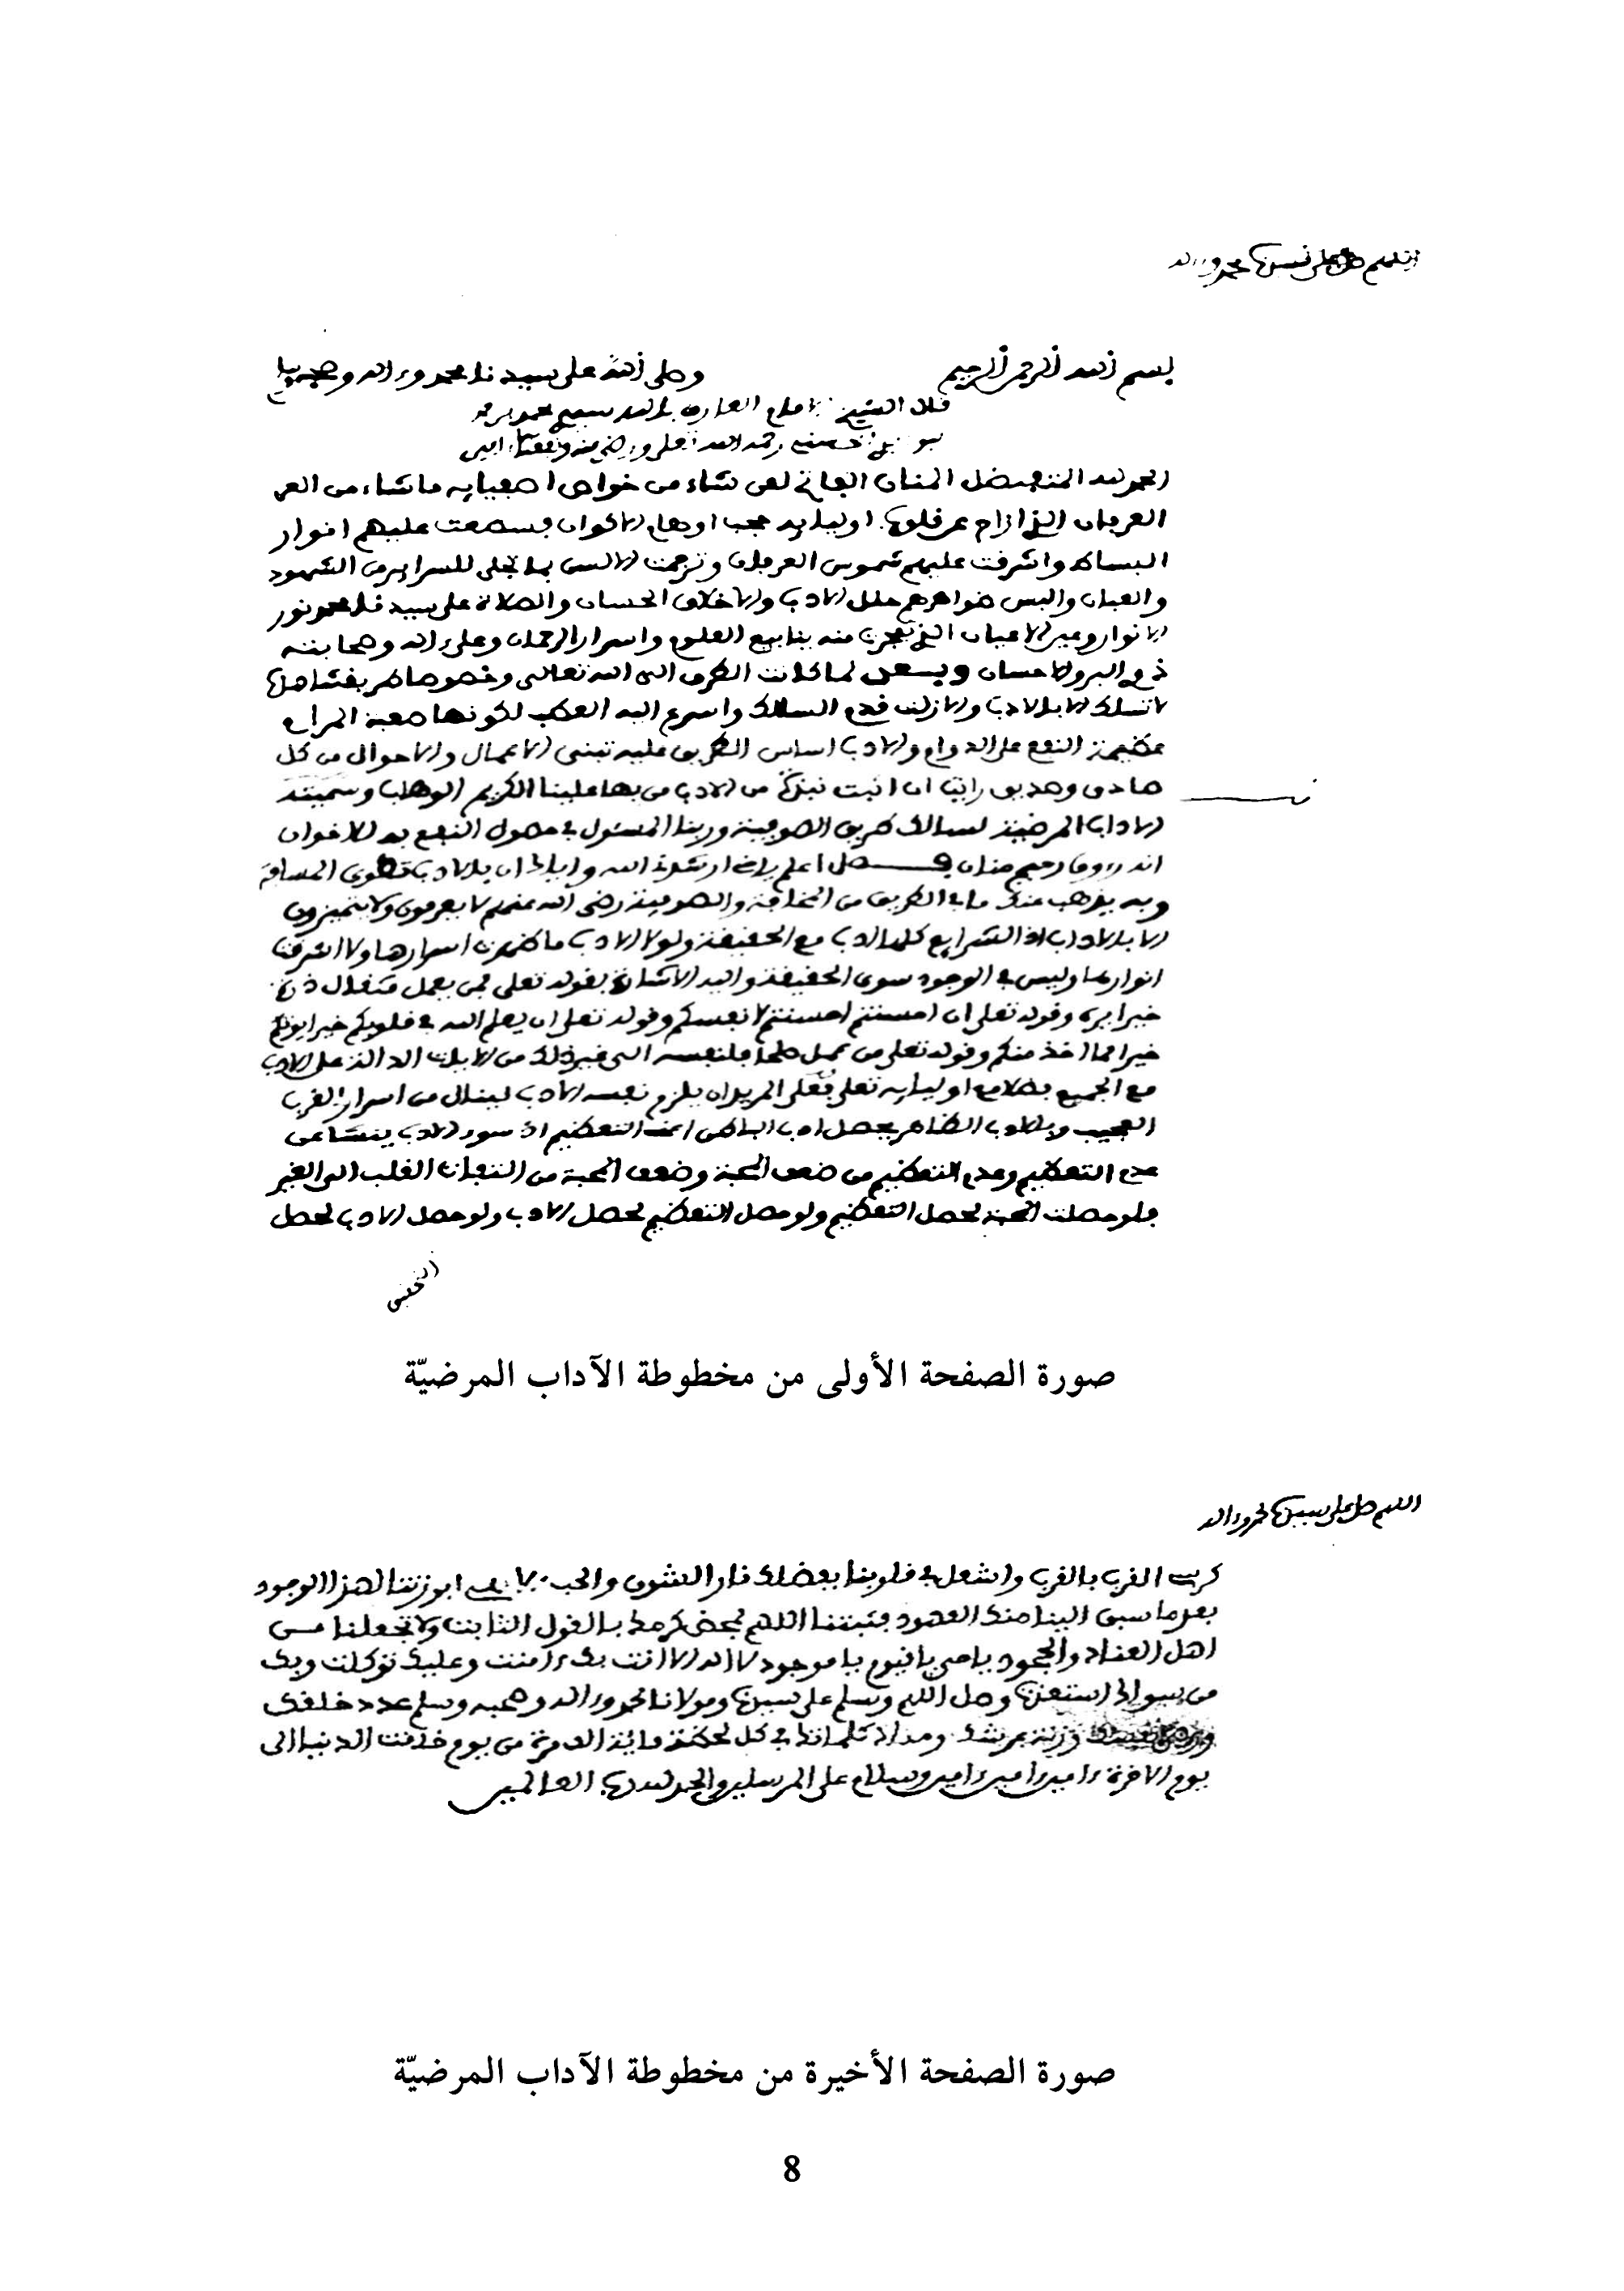 اللهم صل على سيدنا محمد واله
بسم الله الرحمن الرحيم وصلى الله على سيدنا محمد وءاله وصحبه
قال الشيخ الامام العارف بالله سيدي محمد
رحمه الله تعلى ورضي عنه ونفعنا امين
الحمد لله المتفضل المنان الفاتح لمن شاء من خواص اصفيايه ما شاء من
العرفان الذي ازاح عن قلوب اوليايه حجب اوهام الاكوان فسطعت عليهم انوار
واشرفت عليهم شموس العرفان وترجمت الالسن بما تجلى للسراير من الشهود
والعيان والبس ظواهرهم حلل الاداب والاخلاق الحسان والصلاة على سيدنا محمد نور
الانوار وعين الاعيان الذي تفجرت منه ينابيع العلوم واسرار الرحمان وعلى ءاله وصحابته
ذوي البر والاحسان وبعد لما كانت الطرق الى الله تعالى وخصوصا طريقتنا هذه
لا تسلك الا بالادب والا زلت قدم السالك واسرع اليه العطب لكونها صعبة المرام
عظيمة النفع على الدوام والادب اساس الطريق عليه تبنى الاعمال والاحوال من كل
صادق وصديق رايت ان اثبت نبذة من الادب من بها علينا الكريم الوهاب وسميته
الاداب المرضية لسالك طريق الصوفية وربنا المسئول في حصول النفع به للاخوان
انه رءوف رحيم منان فصل اعلم يا اخي ارشدنا الله واياك ان بالادب تطوى المسافة
وبه يذهب عنك ما في الطريق من المخافة والصوفية رضي الله عنهم لا يعرفون ولا يتميزون
الا بالاداب اذ الشرايع كلها ادب مع الحقيقة ولولا الادب ما ظهرت اسرارها ولا اشرقت
انوارها وليس في الوجود سوى الحقيقة واليه الاشارة بقوله تعلى فمن يعمل مثقال ذرة
خيرا يره وقوله تعلى ان احسنتم احسنتم لانفسكم وقوله تعلى ان يعلم الله في قلوبكم خيرا يوتكم
خيرا مما اخذ منكم وقوله تعلى من عمل صلحا فلنفسه الى غير ذلك من الايات الدالة على الادب
مع الجميع اوليايه تعلى فعلى المريد ان يلزم نفسه الادب لينال من اسرار القرب
العجيب وبالادب الظاهر يحصل ادب الباطن اعني التعظيم اذ سوء الادب ينشا عن
عدم التعظيم وعدم التعظيم من ضعف المحبة وضعف المحبة من التفات القلب الى الغير
فلو حصلت المحبة لحصل التعظيم ولو حصل التعظيم لحصل الادب ولو حصل الادب لحصل
صورة الصفحة الأولى من مخطوطة الآداب المرضيّة
اللهم صل على سيدنا محمد واله
القرب بالقرب واشعل في قلوبنا بفضلك نار الشوق والحب ابرزتنا لهذا الوجود
بعد ما سبق الينا منك العهود فثبتنا اللهم بمحض كرمك بالقول الثابت ولا تجعلنا من
اهل العناد والجحود يا حي يا قيوم يا موجود لا اله الا انت بك ءامنت وعليك توكلت وبك
من سواك استعذت وصل اللهم وسلم على سيدنا ومولانا محمد وءاله وصحبه وسلم عدد خلقك
ورضى نفسك وزنة عرشك ومداد كلماتك في كل لحظة ماية الف مرة من يوم خلقت الدنيا الى
يوم الاخرة ءامين ءامين ءامين وسلام على المرسلين والحمد لله رب العالمين
صورة الصفحة الأخيرة من مخطوطة الآداب المرضيّة
8